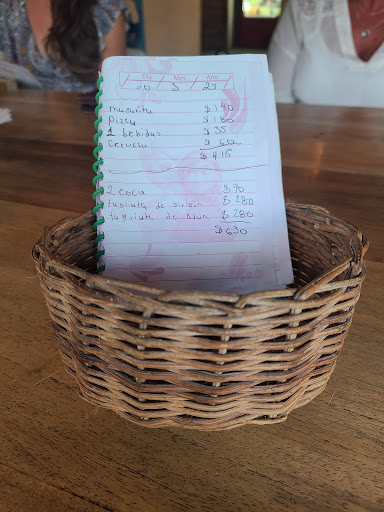 Dia Mes Año
20 3 23
$ 140
Pizza $ 180
1 bebidas $ 35
Cerveza $ 60
$ 415
2 coca $ 70
de sirloin $ 280
de Atun $ 280
$ 630